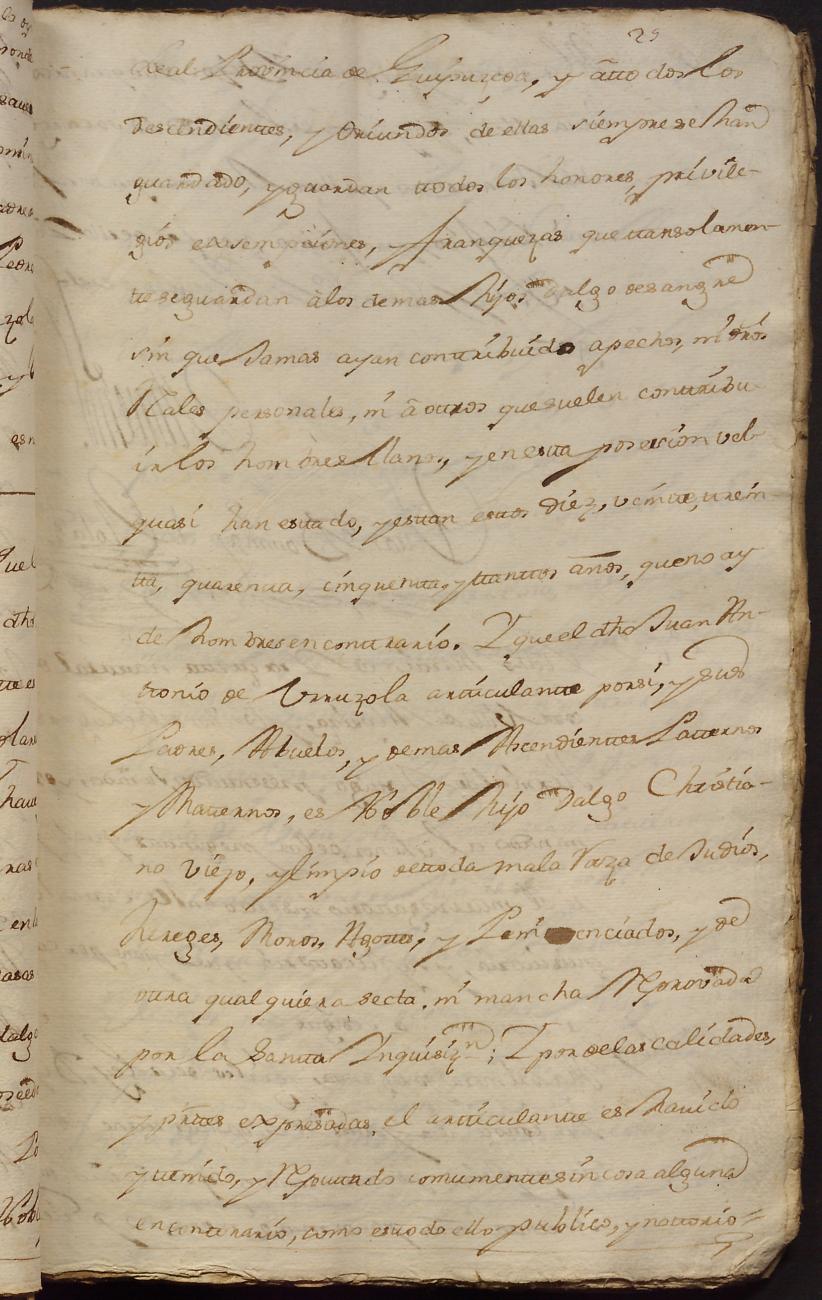 29
Real Provincia de Guipuzcoa, y átto dos los
descendientes, y oriundos de ellas siempre se han
guardado, y guardan ttodos los honores, privile-
gios exsempciones, franquezas que ttan solamen-
tte se guardan álos demas hijos dalgo de sangre
sin que Jamas ayan conttribuido a pechos, ni
Reales personales, ni á ottros que suelen conttribu-
ir los hombres llanos, y en estta posesion vel-
quasi han esttado, y esttan esttos diez, veintte, ttrein-
tta, quarentta, cinquentta, y ttanttos años, que no ay
de hombres en conttrario. Y que el dho Juan An-
ttonio de Urruzola artticulantte por si, y sus
Padres, Abuelos, y demas Ascendienttes Patternos
y Matternos, es Noble hijo Dalgo Christia-
no viejo, y limpio de ttoda mala raza de Judios,
hereges, Moros, Agottes, y Peni enciados, y de
ottra qual quiera secta, ni mancha Reprovada
por la Santta Inquisizn; Y por de las calidades,
y prttes expresadas, el artticulantte es havido
y ttenido, y Reputtado comunmentte sin cosa alguna
en conttrario, como es ttodo ello publico, y nottorio=